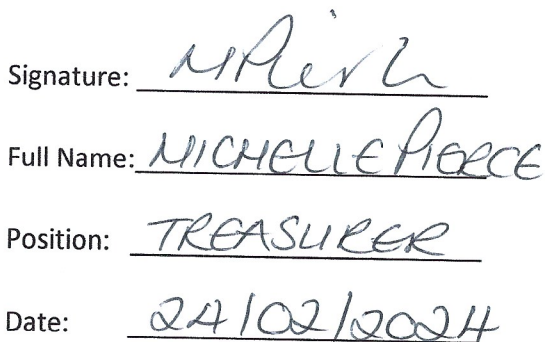 Signature: MPierce
Full Name: MICHELLE PIERCE
Position: TREASURER
Date: 24/02/2024